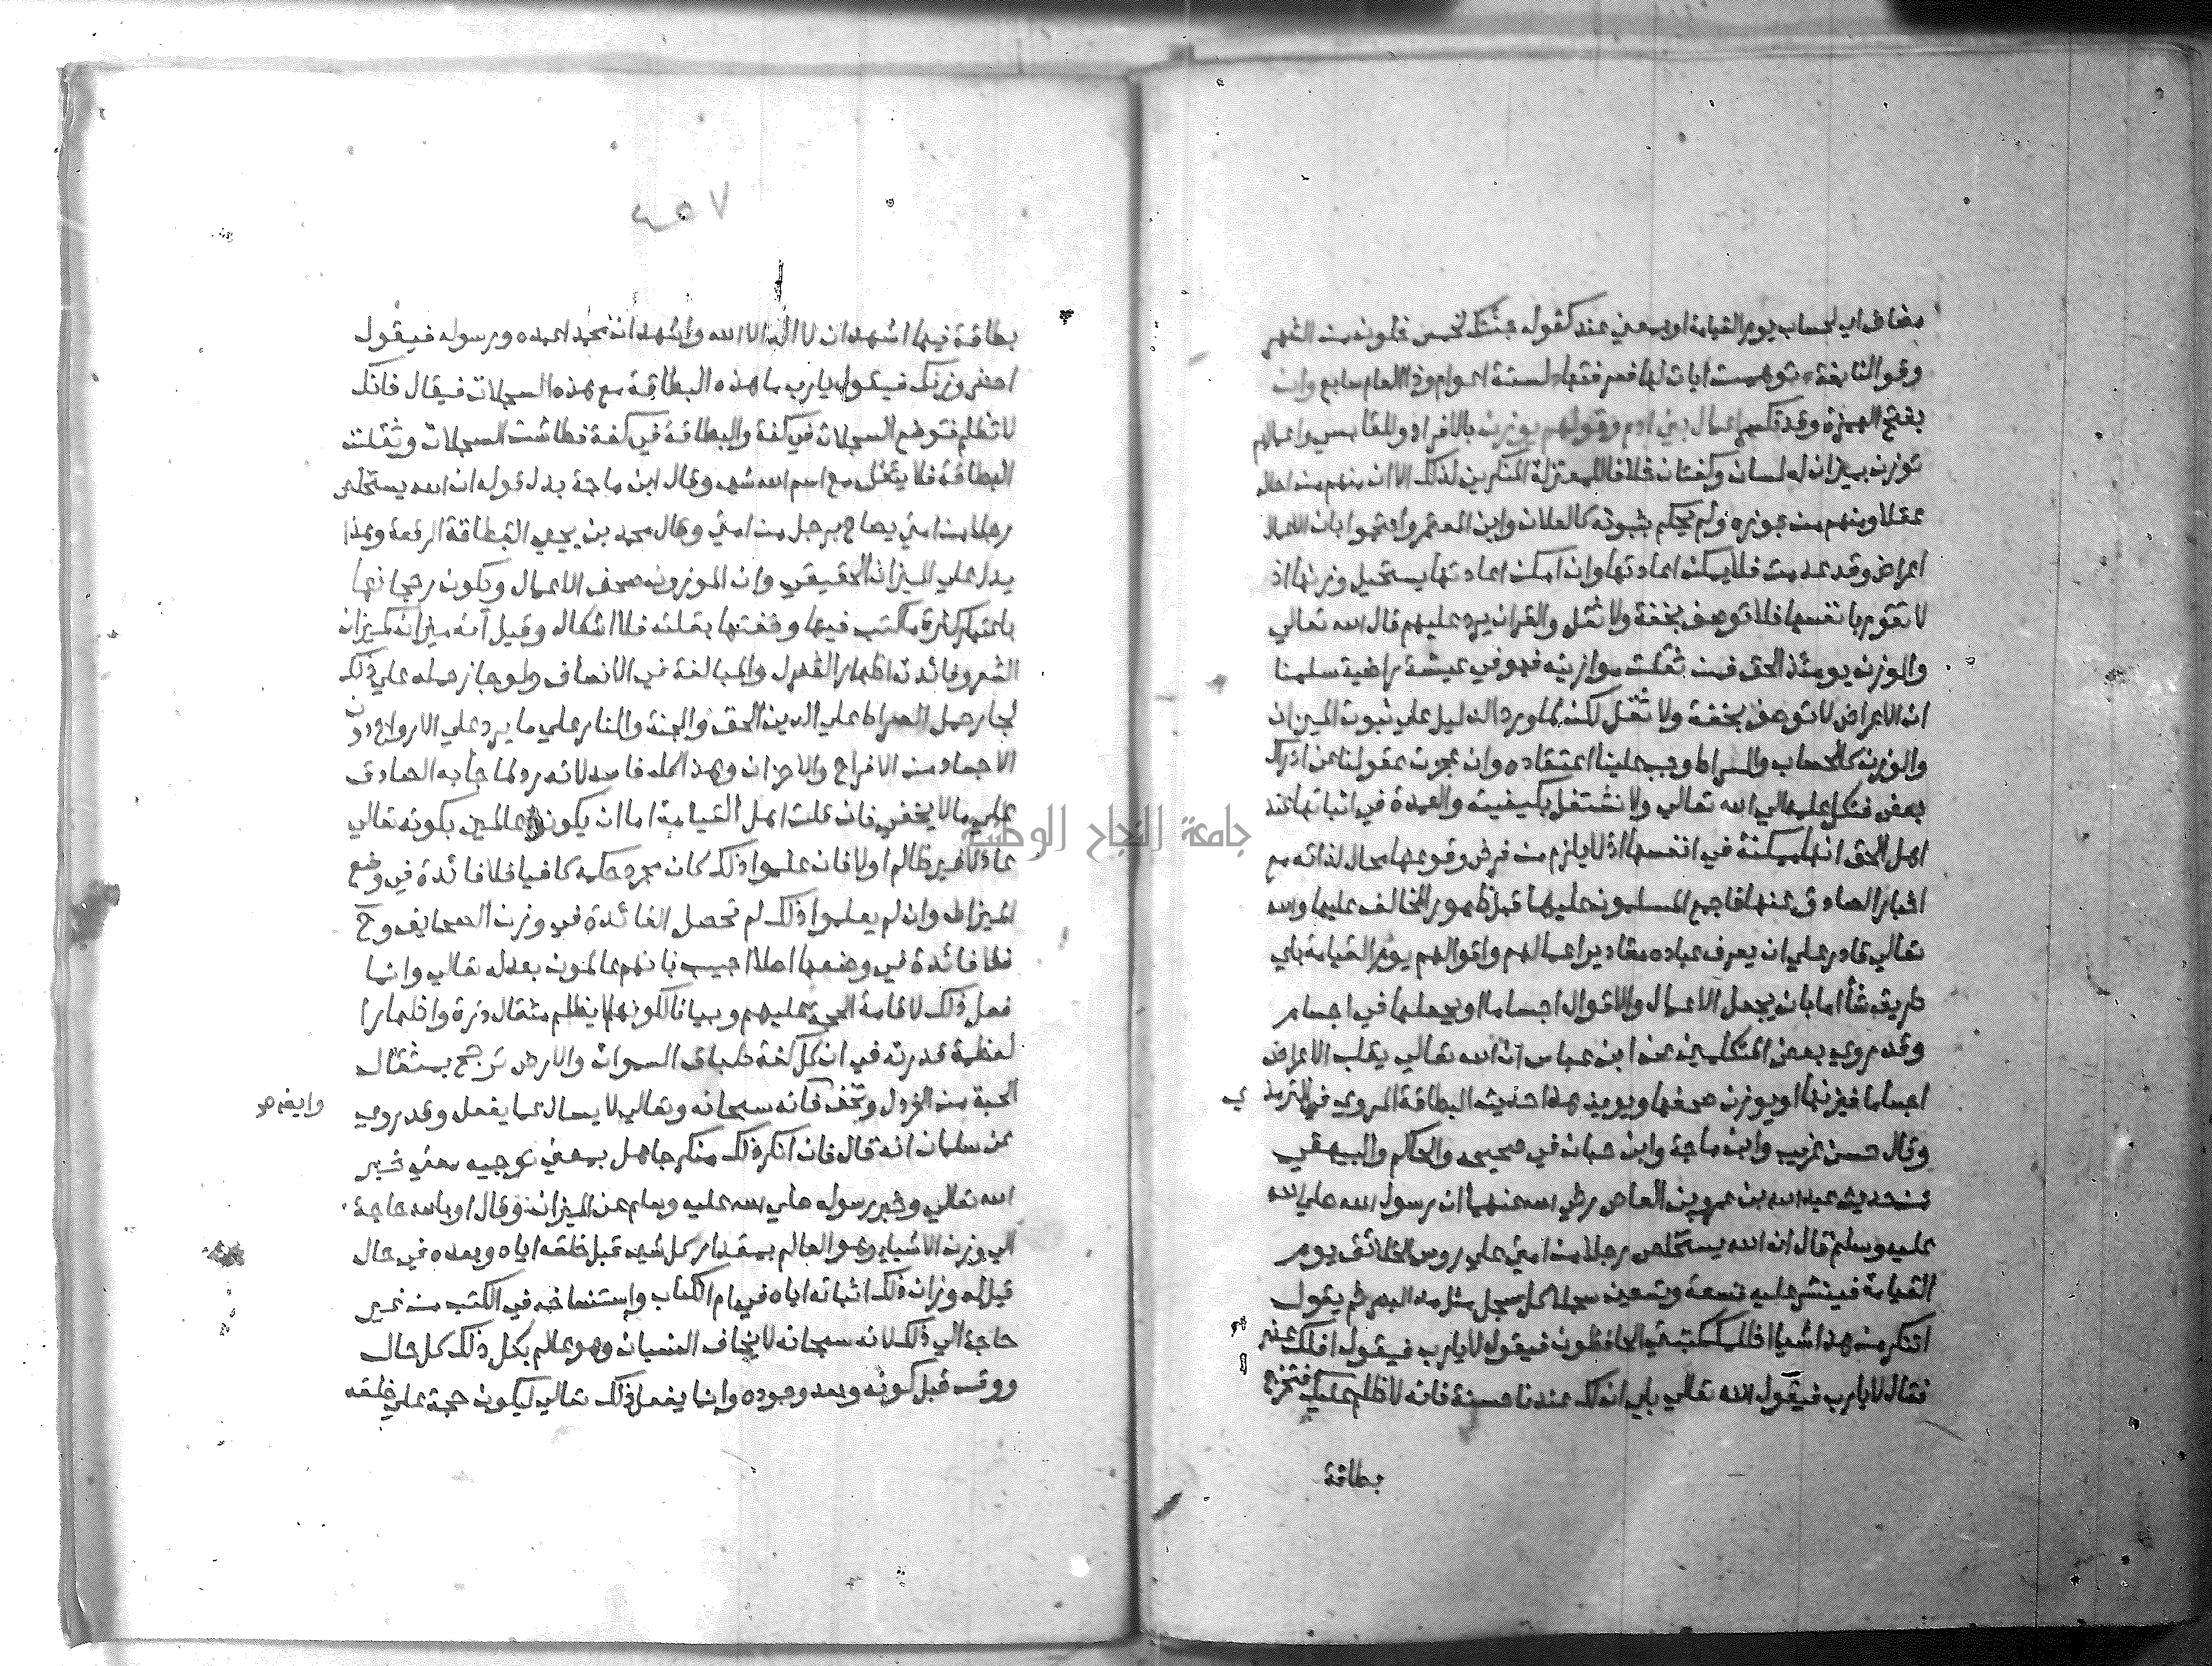 مضاف اي لحساب يوم القيامة او بمعني عند كقوله جئتك لخمس خلون من الشهر
وقول النابغة توهمت ايات لها فعرفتها لستة اعوام وذا العام سابع وان
بفتح الهمزة وقد تكسر اعمال بني ادم وقولهم يوزن بالافراد وللقابسي واعمالهم
توزن بميزان له لسان وكفتان خلافا للمعتزلة المنكرين لذلك الا ان منهم من احاله
عقلا ومنهم من جوزه ولم يحكم بثبوته كالعلاف وابن المعتمر واحتجوا بان الاعمال
اعراض وقد عدمت فلا يمكن اعادتها وان امكن اعادتها يستحيل وزنها اذ
لا تقوم بانفسها فلا توصف بخفة ولا ثقل والقران يرد عليهم قال الله تعالي
والوزن يومئذ الحق فمن ثقلت موازينه فهو في عيشة راضية سلمنا
ان الاعراض لا توصف بخفة ولا ثقل لكن لما ورد الدليل علي ثبوت الميزان
والوزن كالحساب والصراط وجب علينا اعتقاده وان عجزت عقولنا عن ادراك
بعض فنكل علمه الي الله تعالي ولا نشتغل بكيفيته والعمدة في اثباتها عند
اهل الحق انها ممكنة في انفسها اذ لا يلزم من فرض وقوعها محال لذاته مع
اخبار الصادق عنها فاجمع المسلمون عليها قبل ظهور المخالف عليها والله
تعالي قادر علي ان يعرف عباده مقادير اعمالهم واقوالهم يوم القيامة باي
طريق شأ اما بان يجعل الاعمال والاقوال اجساما او يجعلها في اجسام
وقد روي بعض المتكلمين عن ابن عباس ان الله تعالي يقلب الاعراض
اجساما فيزنها او يوزن صحفها ويويد هذا حديث البطاقة المروي في الترمذي
وقال حسن غريب وابن ماجة وابن حبان في صحيحه والحاكم والبيهقي
من حديث عبد الله بن عمرو بن العاص رضي الله عنهما ان رسول الله صلي الله
عليه وسلم قال ان الله يستخلص رجلا من امتي علي روس الخلائق يوم
القيامة فينشر عليه تسعة وتسعين سجلا كل سجل مثل مد البصر ثم يقول
اتنكر من هذا شيا اظلمك كتبتي الحافظون فيقول لا يارب فيقول افلك عذر
فقال لا يارب فيقول الله تعالي بلي ان لك عندنا حسنة فانه لا ظلم عليك فتخرج
بطاقة
٤٥٧
بطاقة فيها اشهد ان لا اله الا الله واشهد ان محمدا عبده ورسوله فيقول
احضر وزنك فيقول يارب ما هذه البطاقة مع هذه السجلات فيقال فانك
لا تظلم فتوضع السجلات في كفة والبطاقة في كفة فطاشت السجلات وثقلت
البطاقة فلا يثقل مع اسم الله شي وقال ابن ماجة بدل قوله ان الله يستخلص
رجلا من امتي يصاح برجل من امتي وقال محمد بن يحيي البطاقة الرقعة وهذا
يدل علي الميزان الحقيقي وان الموزون صحف الاعمال ويكون رجحانها
باعتبار كثرة ما كتب فيها وخفتها بقلته فلا اشكال وقيل انه ميزان كميزان
الشعر وفائدته اظهار العدل والمبالغة في الانصاف ولو جاز حمله علي ذلك
لجاز حمل الصراط علي الدين الحق والجنة والنار علي ما يرد علي الارواح دون
الاجساد من الافراح والاحزان وهذا كله فاسد لانه رد لما جا به الصادق
علي ما لا يخفي فان قلت اهل القيامة اما ان يكونوا عالمين بكونه تعالي
عادلا غير ظالم اولا فان علموا ذلك كان مجرد حكمه كافيا فلا فائدة في وضع
الميزان وان لم يعلموا ذلك لم تحصل الفائدة في وزن الصحايف وح
فلا فائدة في وضعها اصلا اجيب بانهم عالمون بعدله تعالي وانما
فعل ذلك لاقامة الحجة عليهم وبيانا لكونه لا يظلم مثقال ذرة واظهارا
لعظمة قدرته في ان كل كفة طباق السموات والارض ترجح بمثقال
الحبة من الخردل وتخف فانه سبحانه وتعالي لا يسال عما يفعل وقد روي
وايضا هو
عن سلمان انه قال فان انكر ذلك منكر جاهل بمعني توجيه معني خبر
الله تعالي وخبر رسوله صلي الله عليه وسلم عن الميزان وقال او بالله حاجة
الي وزن الاشيا وهو العالم بمقدار كل شي قبل خلقه اياه وبعده في حال
قيل له وزان ذلك اثباته اياه في ام الكتاب واستنساخه في الكتب من غير
حاجة الي ذلك لانه سبحانه لا يخاف النسيان وهو عالم بكل ذلك كل حال
ووقت قبل كونه وبعد وجوده وانما يفعل ذلك تعالي ليكون حجة علي خلقه
جامعة النجاح الوطنية